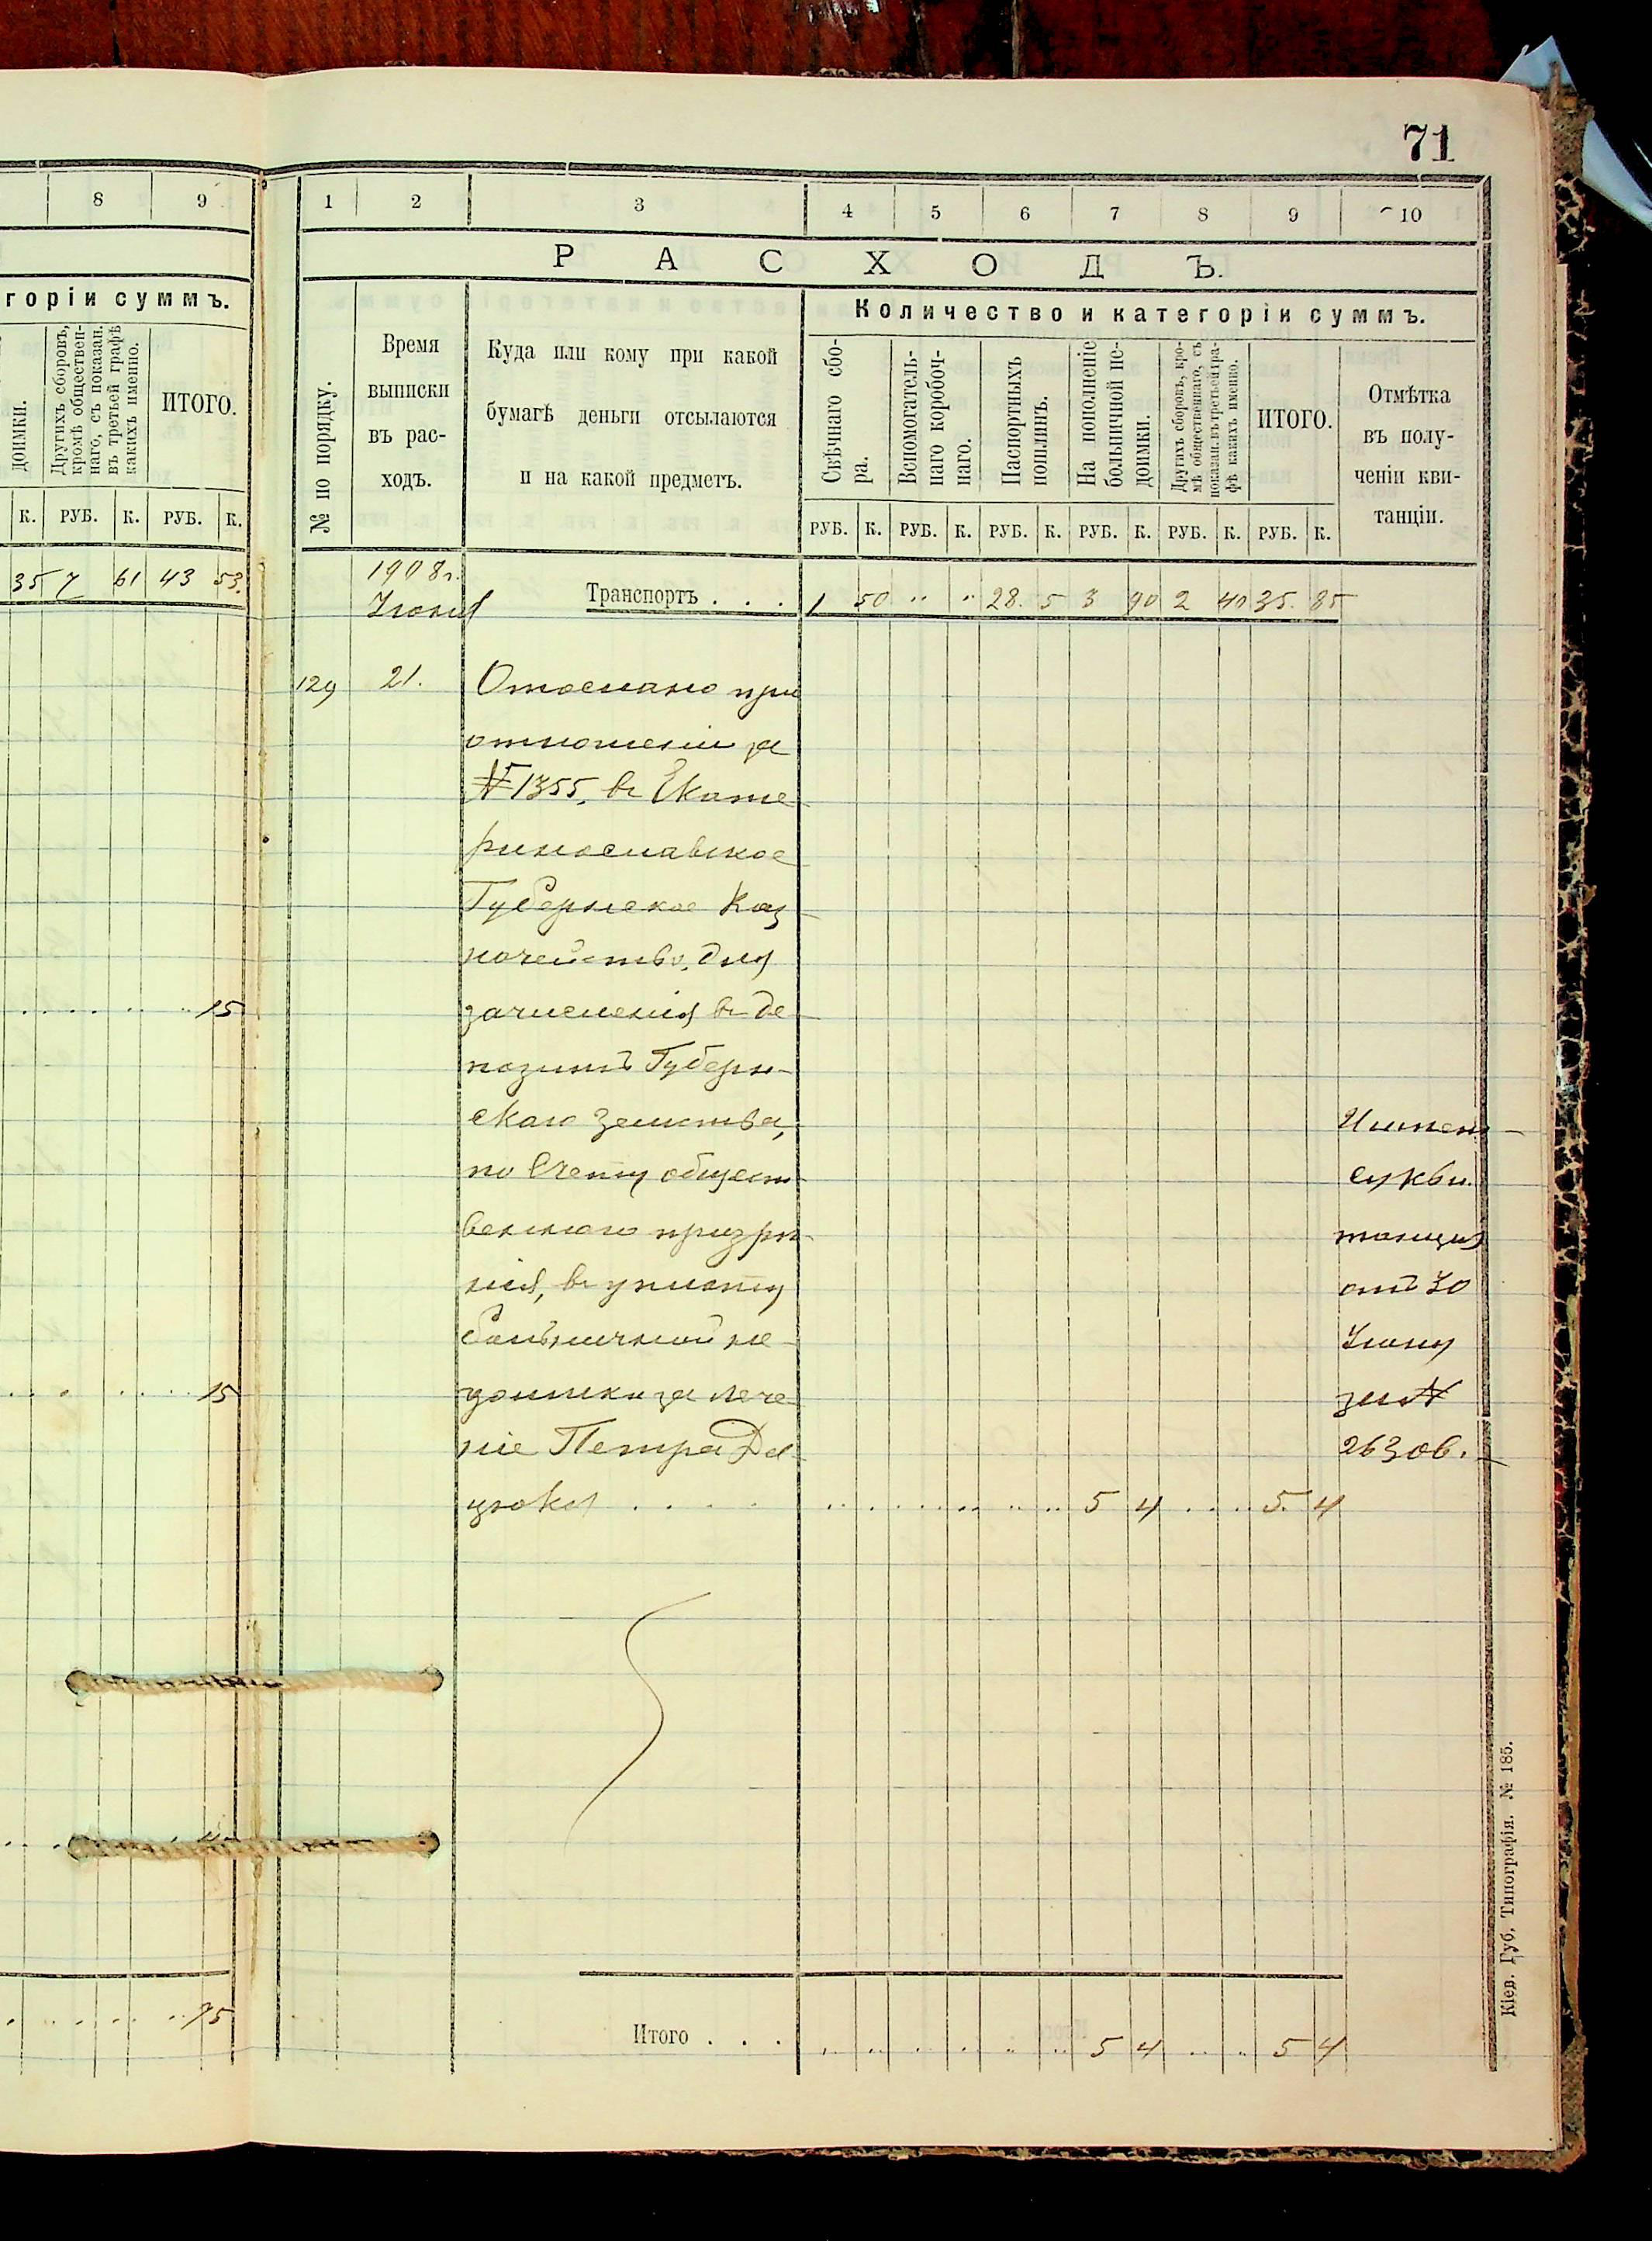 71
8 9
горіи суммъ.
доимки.
Другихъ сборовъ,
кромѣ обществен-
наго, съ показан.
въ третьей графѣ
какихъ именно.
ИТОГО.
К. РУБ. К. РУБ. К.
35 7 61 43 53.
15
15
15
1 2 3 4 5 6 7 8 9 10
РАСХОДЪ.
№ по порядку.
Время
выписки
въ рас-
ходъ.
Куда или кому при какой
бумагѣ деньги отсылаются
и на какой предметъ.
Количество и категоріи суммъ.
Свѣчнаго сбо-
ра.
Вспомогатель-
наго коробоч-
наго.
Паспортныхъ
пошлинъ.
На пополненіе
больничной не-
доимки.
Другихъ сборовъ, кро-
мѣ общественнаго, съ
показан. въ третьей гра-
фѣ какихъ именно.
ИТОГО.
Отмѣтка
въ полу-
ченіи кви-
танціи.
РУБ. К. РУБ. К. РУБ. К. РУБ. К. РУБ. К. РУБ. К.
1908 г.
Іюня
Транспортъ . . . 1 50 " " 28. 5 3 90 2 40 35. 85
129 21. Отослано при
отношеніи за
№ 1355, въ Екате
ринославское
Губернское Каз
начейство, для
зачисленія въ де
позитъ Губерн-
скаго Земства,
по счету общест
веннаго призрѣ-
нія, въ уплату
больничной не-
доимки за лече
ніе Петра Да
цюка . . . . . 5 4 . . . 5. 4
квн.
танція
отъ 30
Іюня
за №
26306.
Итого . . . 5 4 5 4
Кіев. Губ. Типографія. № 185.